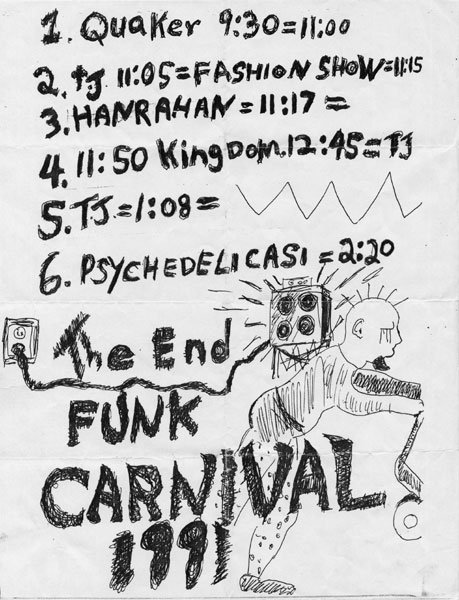 1. Quaker 9:30=11:00
2. TJ 11:05=FASHION SHOW=11:15
3. HANRAHAN=11:17=
4. 11:50 KingDom.12:45=TJ
5. TJ=1:08=
6. PSYCHEDELICASI=2:20
The End
FUNK
CARNIVAL
1991